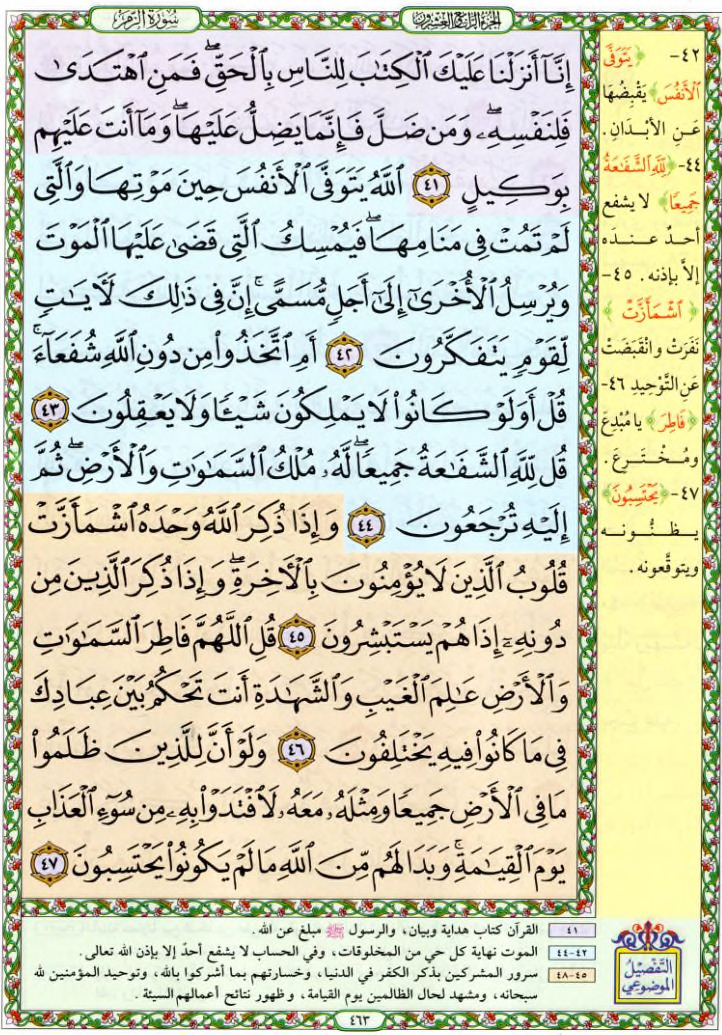 سُورَةُ الزُّمَرِ
الجُزْءُ الرَّابِعُ وَالعِشْرُونَ
إِنَّآ أَنزَلْنَا عَلَيْكَ ٱلْكِتَٰبَ لِلنَّاسِ بِٱلْحَقِّۖ فَمَنِ ٱهْتَدَىٰ
فَلِنَفْسِهِۦۖ وَمَن ضَلَّ فَإِنَّمَا يَضِلُّ عَلَيْهَاۖ وَمَآ أَنتَ عَلَيْهِم
بِوَكِيلٍ ٤١ ٱللَّهُ يَتَوَفَّى ٱلْأَنفُسَ حِينَ مَوْتِهَا وَٱلَّتِى
لَمْ تَمُتْ فِى مَنَامِهَاۖ فَيُمْسِكُ ٱلَّتِى قَضَىٰ عَلَيْهَا ٱلْمَوْتَ
وَيُرْسِلُ ٱلْأُخْرَىٰٓ إِلَىٰٓ أَجَلٍ مُّسَمًّىۚ إِنَّ فِى ذَٰلِكَ لَـَٔايَٰتٍ
لِّقَوْمٍ يَتَفَكَّرُونَ ٤٢ أَمِ ٱتَّخَذُوا۟ مِن دُونِ ٱللَّهِ شُفَعَآءَۚ
قُلْ أَوَلَوْ كَانُوا۟ لَا يَمْلِكُونَ شَيْـًٔا وَلَا يَعْقِلُونَ ٤٣
قُل لِّلَّهِ ٱلشَّفَٰعَةُ جَمِيعًاۖ لَّهُۥ مُلْكُ ٱلسَّمَٰوَٰتِ وَٱلْأَرْضِۖ ثُمَّ
إِلَيْهِ تُرْجَعُونَ ٤٤ وَإِذَا ذُكِرَ ٱللَّهُ وَحْدَهُ ٱشْمَأَزَّتْ
قُلُوبُ ٱلَّذِينَ لَا يُؤْمِنُونَ بِٱلْـَٔاخِرَةِۖ وَإِذَا ذُكِرَ ٱلَّذِينَ مِن
دُونِهِۦٓ إِذَا هُمْ يَسْتَبْشِرُونَ ٤٥ قُلِ ٱللَّهُمَّ فَاطِرَ ٱلسَّمَٰوَٰتِ
وَٱلْأَرْضِ عَٰلِمَ ٱلْغَيْبِ وَٱلشَّهَٰدَةِ أَنتَ تَحْكُمُ بَيْنَ عِبَادِكَ
فِى مَا كَانُوا۟ فِيهِ يَخْتَلِفُونَ ٤٦ وَلَوْ أَنَّ لِلَّذِينَ ظَلَمُوا۟
مَا فِى ٱلْأَرْضِ جَمِيعًا وَمِثْلَهُۥ مَعَهُۥ لَٱفْتَدَوْا۟ بِهِۦ مِن سُوٓءِ ٱلْعَذَابِ
يَوْمَ ٱلْقِيَٰمَةِۚ وَبَدَا لَهُم مِّنَ ٱللَّهِ مَا لَمْ يَكُونُوا۟ يَحْتَسِبُونَ ٤٧
٤٢- ﴿يَتَوَفَّى
ٱلْأَنفُسَ﴾ يَقْبِضُهَا
عَنِ الأبْدَانِ.
٤٤- ﴿لِّلَّهِ ٱلشَّفَٰعَةُ
جَمِيعًا﴾ لا يشفع
أحدٌ عنده
إلاَّ بإذنه. ٤٥-
﴿ٱشْمَأَزَّتْ﴾
نَفَرَتْ وانْقَبَضَتْ
عَنِ التَّوْحِيدِ ٤٦-
﴿فَاطِرَ﴾ يا مُبْدِعَ
ومُخْتَرِعَ.
٤٧- ﴿يَحْتَسِبُونَ﴾
يظنُّونه
ويتوقَّعونه.
٤١ القرآن كتاب هداية وبيان، والرسول ﷺ مبلغ عن الله.
٤٢-٤٤ الموت نهاية كل حي من المخلوقات، وفي الحساب لا يشفع أحدٌ إلا بإذن الله تعالى.
٤٥-٤٨ سرور المشركين بذكر الكفر في الدنيا، وخسارتهم بما أشركوا بالله، وتوحيد المؤمنين لله
سبحانه، ومشهد لحال الظالمين يوم القيامة، وظهور نتائج أعمالهم السيئة.
التَّفْصِيلُ
الموضوعي
٤٦٣